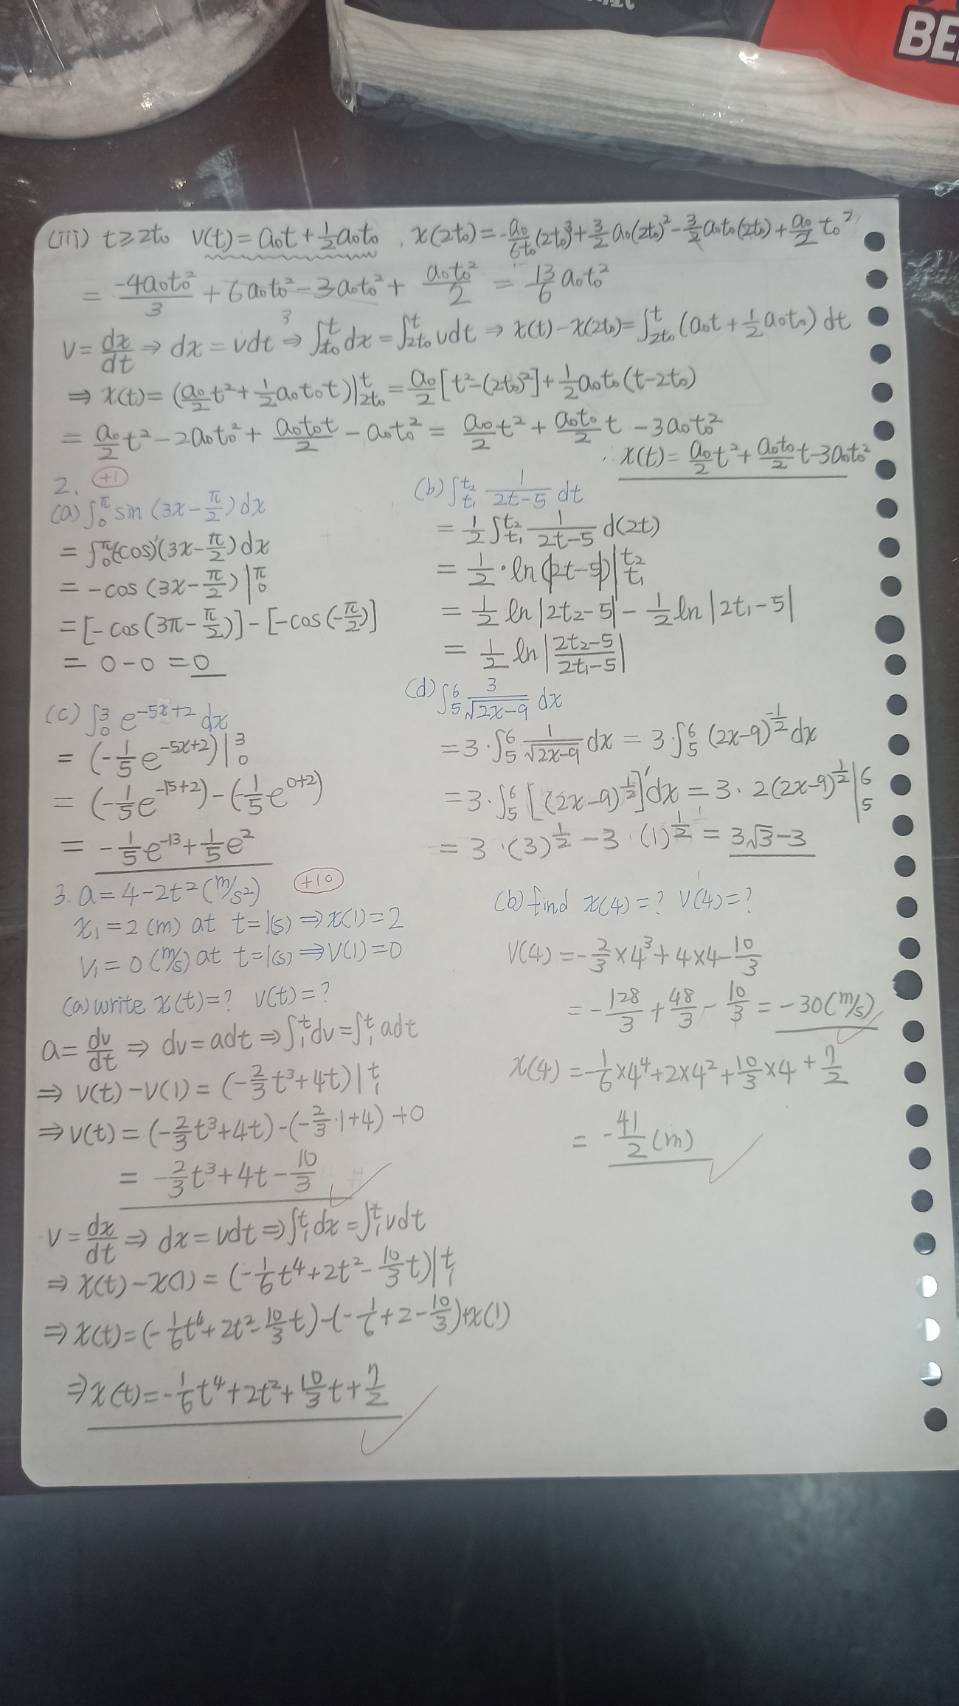 BE
(iii) t≥2t₀ v(t)=a₀t+½a₀t₀ . x(2t₀)=-a₀/6t₀(2t₀)³+3/2a₀(2t₀)²-3/2a₀t₀(2t₀)+a₀/2 t₀²
= -4a₀t₀²/3 + 6a₀t₀²-3a₀t₀²+ a₀t₀²/2 = 13/6 a₀t₀²
v=dx/dt ⇒ dx=vdt ⇒ ∫ᵗ₂ₜ₀dx=∫ᵗ₂ₜ₀vdt ⇒ x(t)-x(2t₀)=∫ᵗ₂ₜ₀(a₀t+½a₀t₀)dt
⇒ x(t)=(a₀/2 t²+½a₀t₀t)|ᵗ₂ₜ₀=a₀/2[t²-(2t₀)²]+½a₀t₀(t-2t₀)
= a₀/2 t²-2a₀t₀²+ a₀t₀t/2 - a₀t₀² = a₀/2 t²+ a₀t₀/2 t -3a₀t₀²
∴ x(t)=a₀/2 t²+a₀t₀/2 t-3a₀t₀²
2. +1
(a) ∫₀^π sin(3x-π/2)dx
= ∫₀^π(-cos)'(3x-π/2)dx
= -cos(3x-π/2)|₀^π
=[-cos(3π-π/2)]-[-cos(-π/2)]
= 0-0=0
(b) ∫ₜ₁^t₂ 1/(2t-5) dt
= ½∫ₜ₁^t₂ 1/(2t-5) d(2t)
= ½·ln(|2t-5|)|ₜ₁^t₂
= ½ln|2t₂-5|-½ln|2t₁-5|
= ½ln|(2t₂-5)/(2t₁-5)|
(c) ∫₀³ e^(-5x+2)dx
= (-1/5 e^(-5x+2))|₀³
= (-1/5 e^(-15+2))-(-1/5 e^(0+2))
= -1/5 e^(-13)+1/5 e²
(d) ∫₅⁶ 3/√(2x-9) dx
=3·∫₅⁶ 1/√(2x-9) dx = 3·∫₅⁶ (2x-9)^(-1/2)dx
=3·∫₅⁶ [(2x-9)^(1/2)]'dx = 3·2(2x-9)^(1/2)|₅⁶
= 3·(3)^(1/2)-3·(1)^(1/2) = 3√3-3
3. a=4-2t²(m/s²) +10
x₁=2(m) at t=1(s)⇒x(1)=2
v₁=0(m/s) at t=1(s)⇒v(1)=0
(a)write x(t)=? v(t)=?
a=dv/dt ⇒ dv=adt ⇒∫₁ᵗdv=∫₁ᵗadt
⇒ v(t)-v(1)=(-2/3t³+4t)|₁ᵗ
⇒v(t)=(-2/3t³+4t)-(-2/3·1+4)+0
= -2/3t³+4t-10/3
v=dx/dt ⇒ dx=vdt⇒∫₁ᵗdx=∫₁ᵗvdt
⇒ x(t)-x(1)=(-1/6t⁴+2t²-10/3t)|₁ᵗ
⇒ x(t)=(-1/6t⁴+2t²-10/3t)-(-1/6+2-10/3)+x(1)
⇒x(t)=-1/6t⁴+2t²+10/3t+7/2
(b)find x(4)=? v(4)=?
v(4)=-2/3×4³+4×4-10/3
=-128/3+48/3-10/3=-30(m/s)
x(4)=-1/6×4⁴+2×4²+10/3×4+7/2
= -41/2(m)